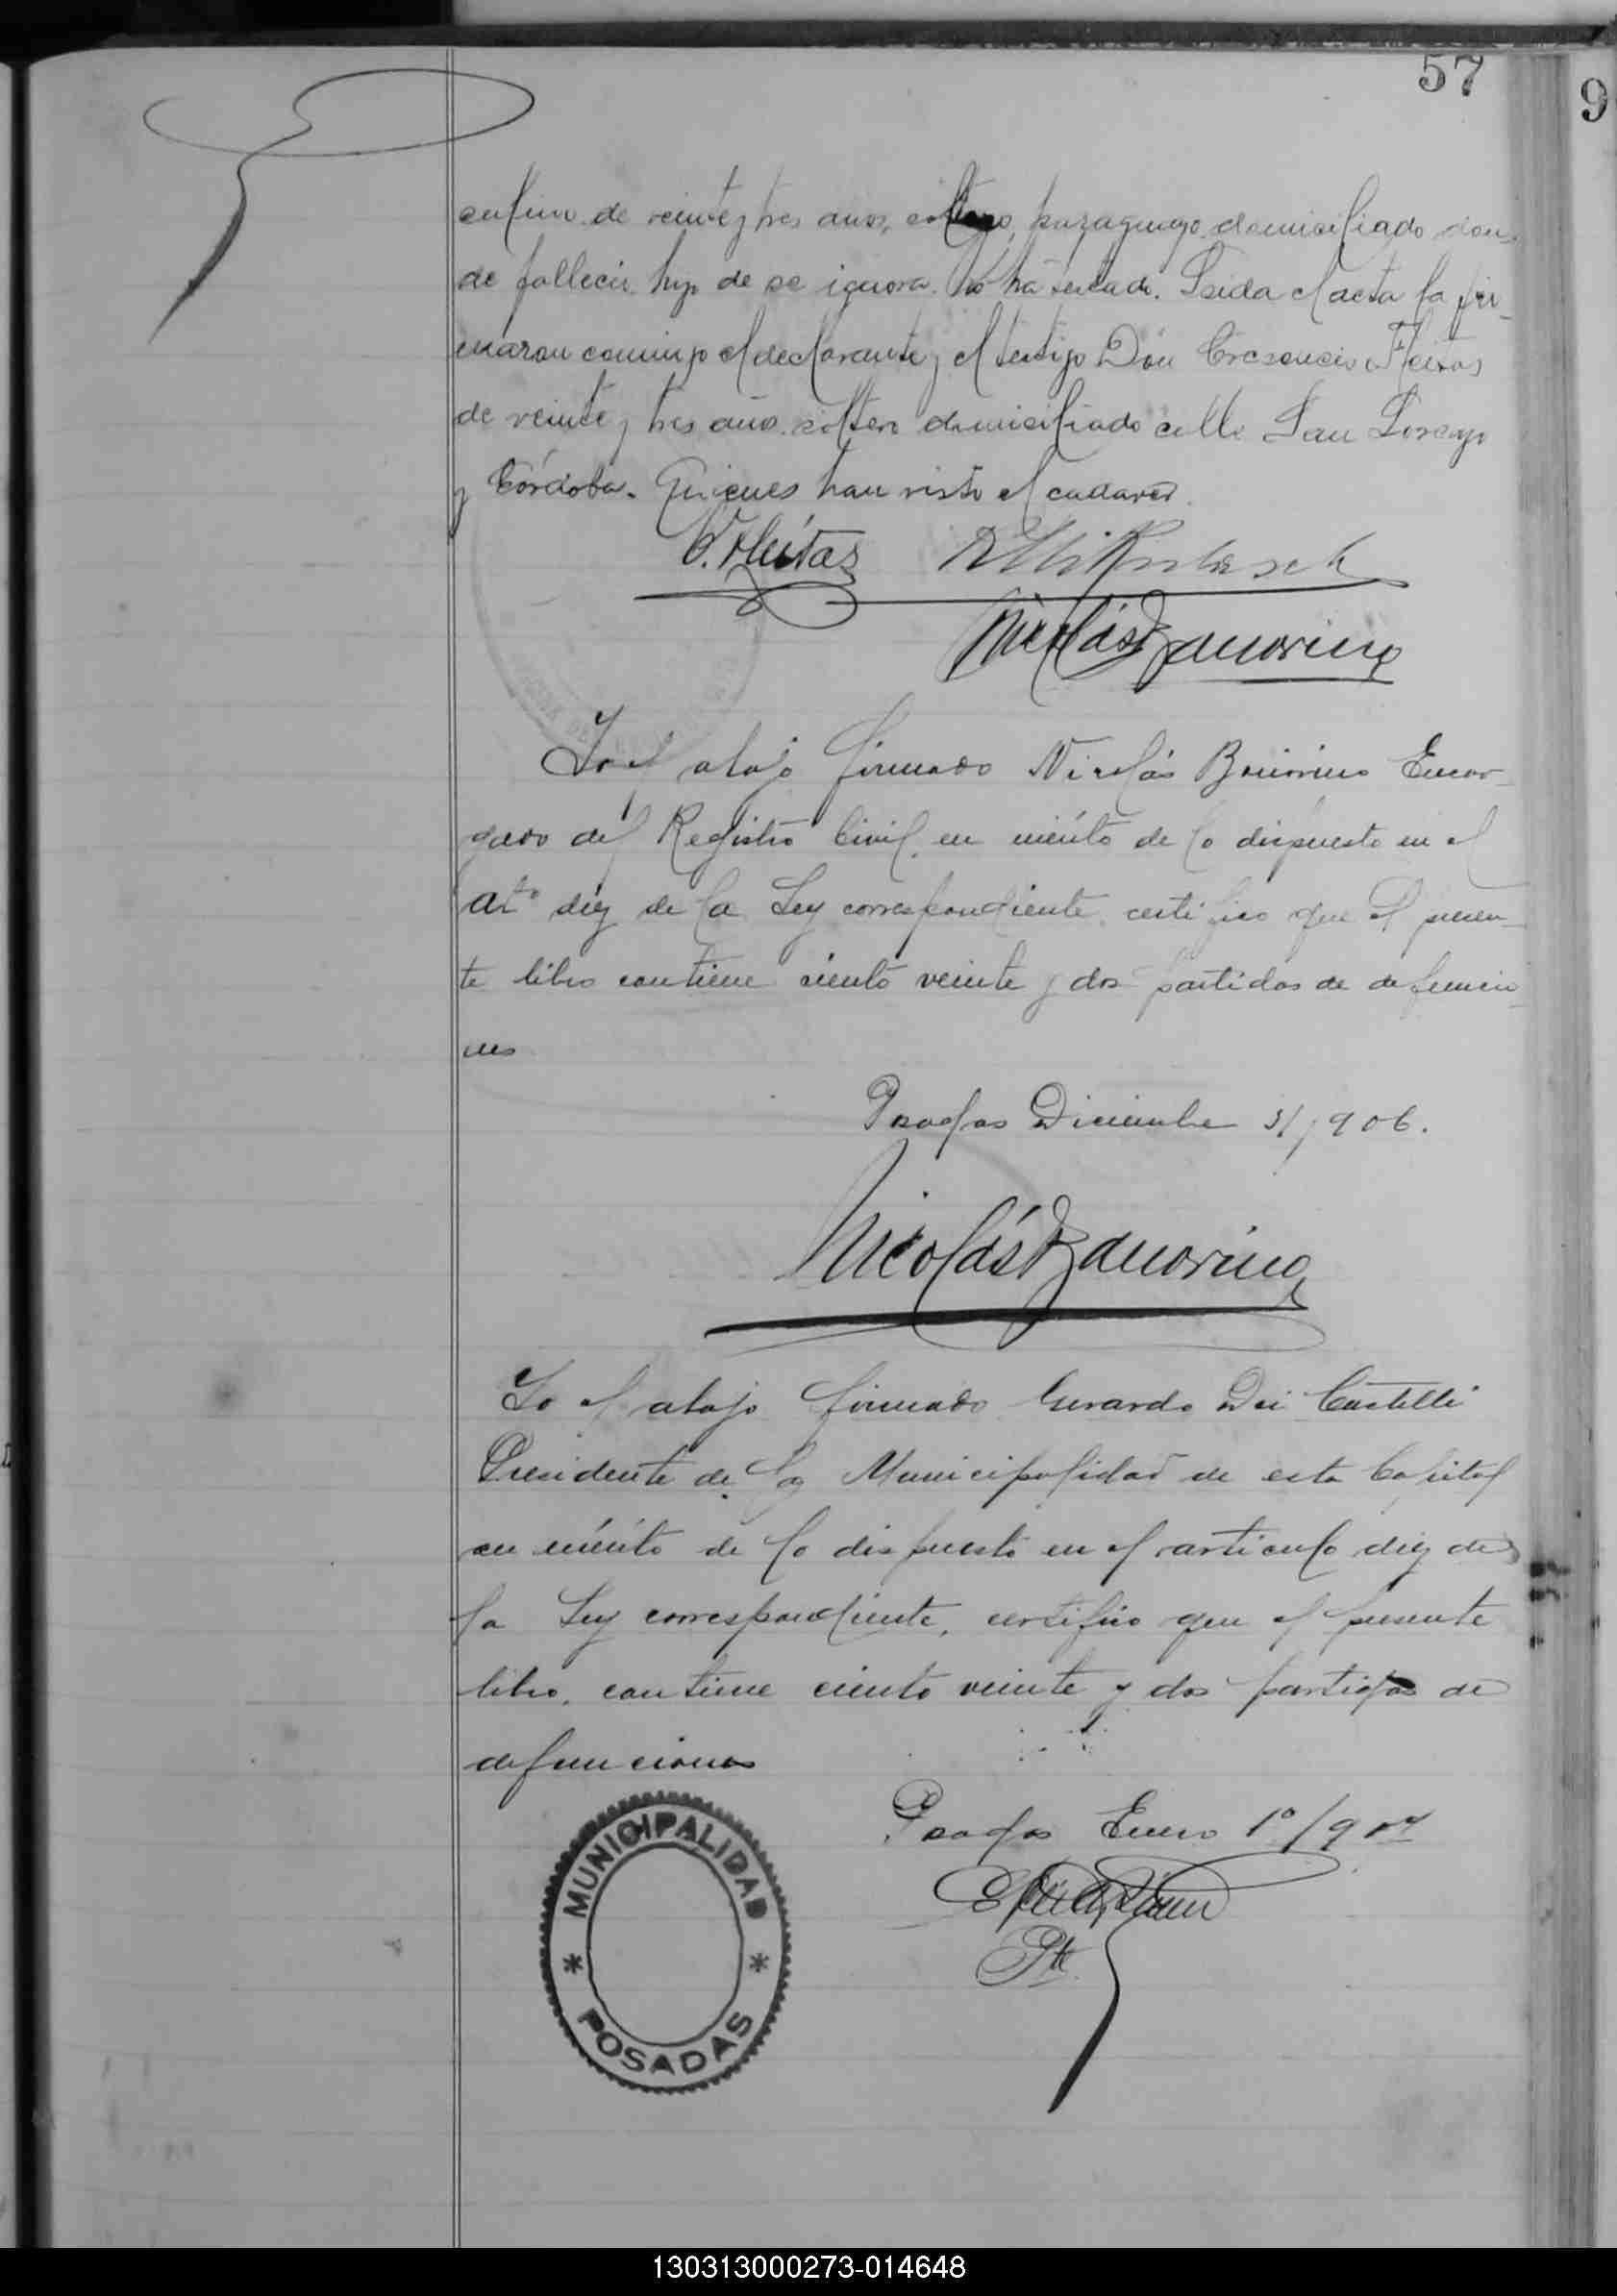 57
9
culino de veinte y tres años, soltero, paraguayo domiciliado don-
de falleció hijo de se ignora. No há testado. Leida el acta la fir-
maron conmigo el declarante y el testigo Don Cresencio Fleitas
de veinte y tres años soltero domiciliado calle San Lorenzo
y Córdoba. Quienes han visto el cadaver.
C. Fleitas
Nicolás
Yo el abajo firmado Nicolás Encar-
gado del Registro Civil en mérito de lo dispuesto en el
Arto diez de la Ley correspondiente, certifico que el presen-
te libro contiene ciento veinte y dos partidas de defuncio-
nes
Posadas Diciembre 31/906.
Nicolás
Yo el abajo firmado Gerardo Dei Castelli
Presidente de la Municipalidad de esta Capital
en mérito de lo dispuesto en el articulo diez de
la Ley correspondiente, certifico que el presente
libro, contiene ciento veinte y dos partidas de
defunciones
MUNICIPALIDAD
POSADAS
Posadas Enero 1º/907
Pte
130313000273-014648